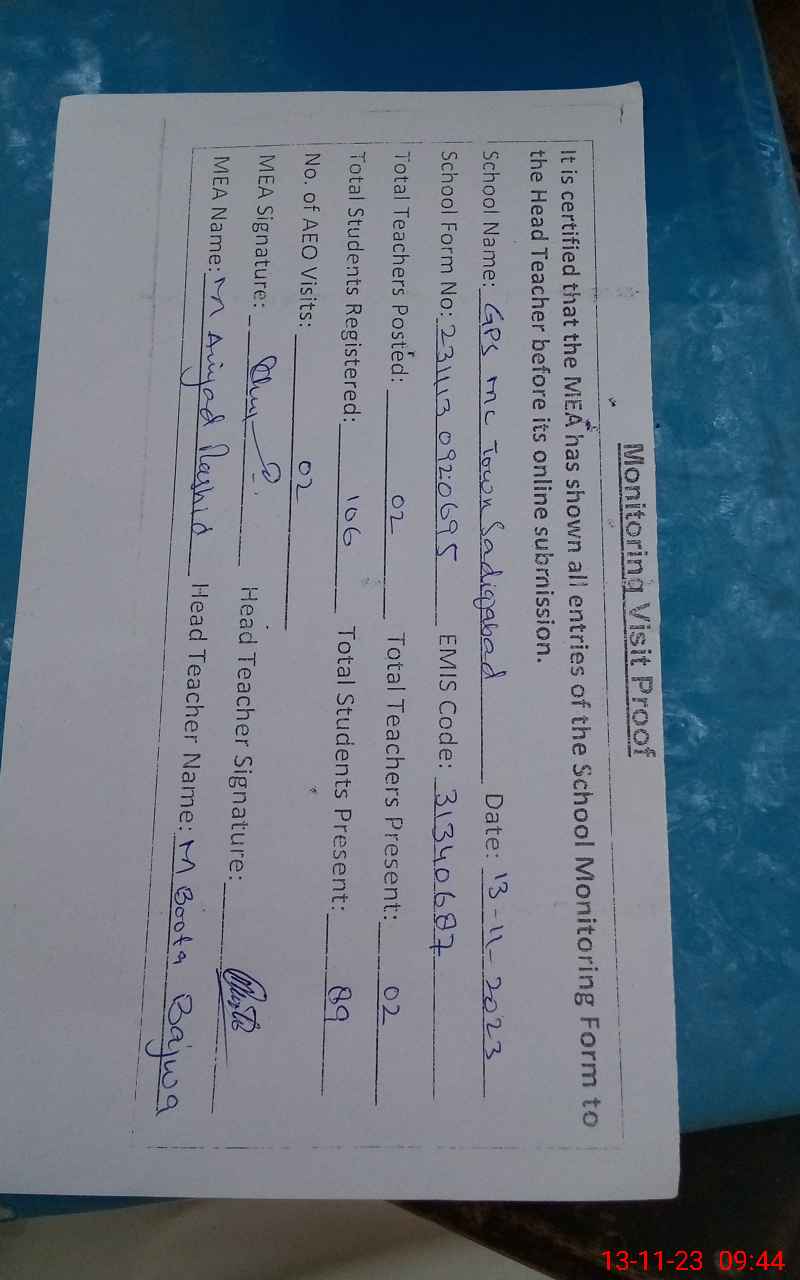 Monitoring Visit Proof
It is certified that the MEA has shown all entries of the School Monitoring Form to
the Head Teacher before its online submission.
School Name: GPS MC Town Sadiqabad Date: 13-11-2023
School Form No: 231113 0920695 EMIS Code: 31340687
Total Teachers Posted: 02 Total Teachers Present: 02
Total Students Registered: 106 Total Students Present: 89
No. of AEO Visits: 02
MEA Signature: Head Teacher Signature:
MEA Name: M Amjad Rashid Head Teacher Name: M Boota Bajwa
13-11-23 09:44